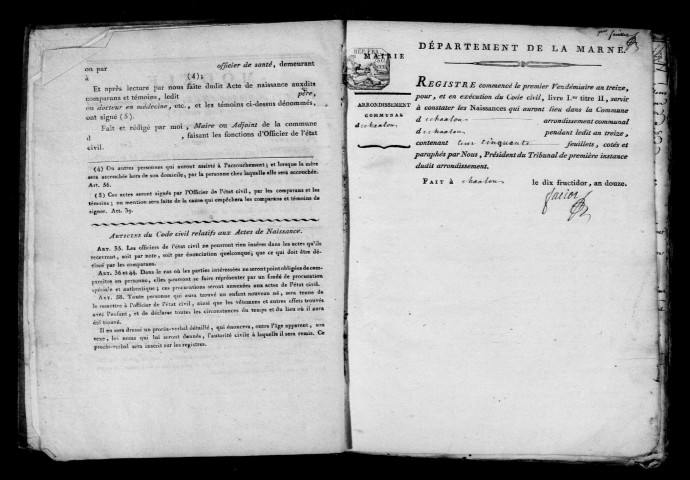 on par officier de santé, demeurant
à (4);
Et après lecture par nous faite dudit Acte de naissance auxdits
comparans et témoins, ledit père,
ou docteur en médecine, etc., et les témoins ci-dessus dénommés,
ont signé (5).
Fait et rédigé par moi, Maire ou Adjoint de la commune
d , faisant les fonctions d'Officier de l'état
civil.
(4) Ou autres personnes qui auront assisté à l'accouchement; et lorsque la mère
sera accouchée hors de son domicile, par la personne chez laquelle elle sera accouchée.
Art. 56.
(5) Ces actes seront signés par l'Officier de l'état civil, par les comparans et les
témoins; ou mention sera faite de la cause qui empêchera les comparans et témoins de
signer. Art. 39.
Articles du Code civil relatifs aux Actes de Naissance.
Art. 35. Les officiers de l'état civil ne pourront rien insérer dans les actes qu'ils
recevront, soit par note, soit par énonciation quelconque; que ce qui doit être dé-
claré par les comparans.
Art. 36 et 44. Dans le cas où les parties intéressées ne seront point obligées de com-
paroître en personne, elles pourront se faire représenter par un fondé de procuration
spéciale et authentique; ces procurations seront annexées aux actes de l'état civil.
Art. 58. Toute personne qui aura trouvé un enfant nouveau né, sera tenue de
le remettre à l'officier de l'état civil, ainsi que les vêtemens et autres effets trouvés
avec l'enfant, et de déclarer toutes les circonstances du temps et du lieu où il aura
été trouvé.
Il en sera dressé un procès-verbal détaillé, qui énoncera, outre l'âge apparent, son
sexe, les noms qui lui seront donnés, l'autorité civile à laquelle il sera remis. Ce
procès-verbal sera inscrit sur les registres.
MAIRIE
ARRONDISSEMENT
COMMUNAL
d chaalons
DÉPARTEMENT DE LA MARNE.
REGISTRE commencé le premier Vendémiaire an treize,
pour, et en exécution du Code civil, livre I.er titre II, servir
à constater les Naissances qui auront lieu dans la Commune
d chaalons arrondissement communal
d chaalons pendant ledit an treize,
contenant cent cinquante feuillets, cotés et
paraphés par Nous, Président du Tribunal de première instance
dudit arrondissement.
FAIT à chaalons le dix fructidor, an douze.